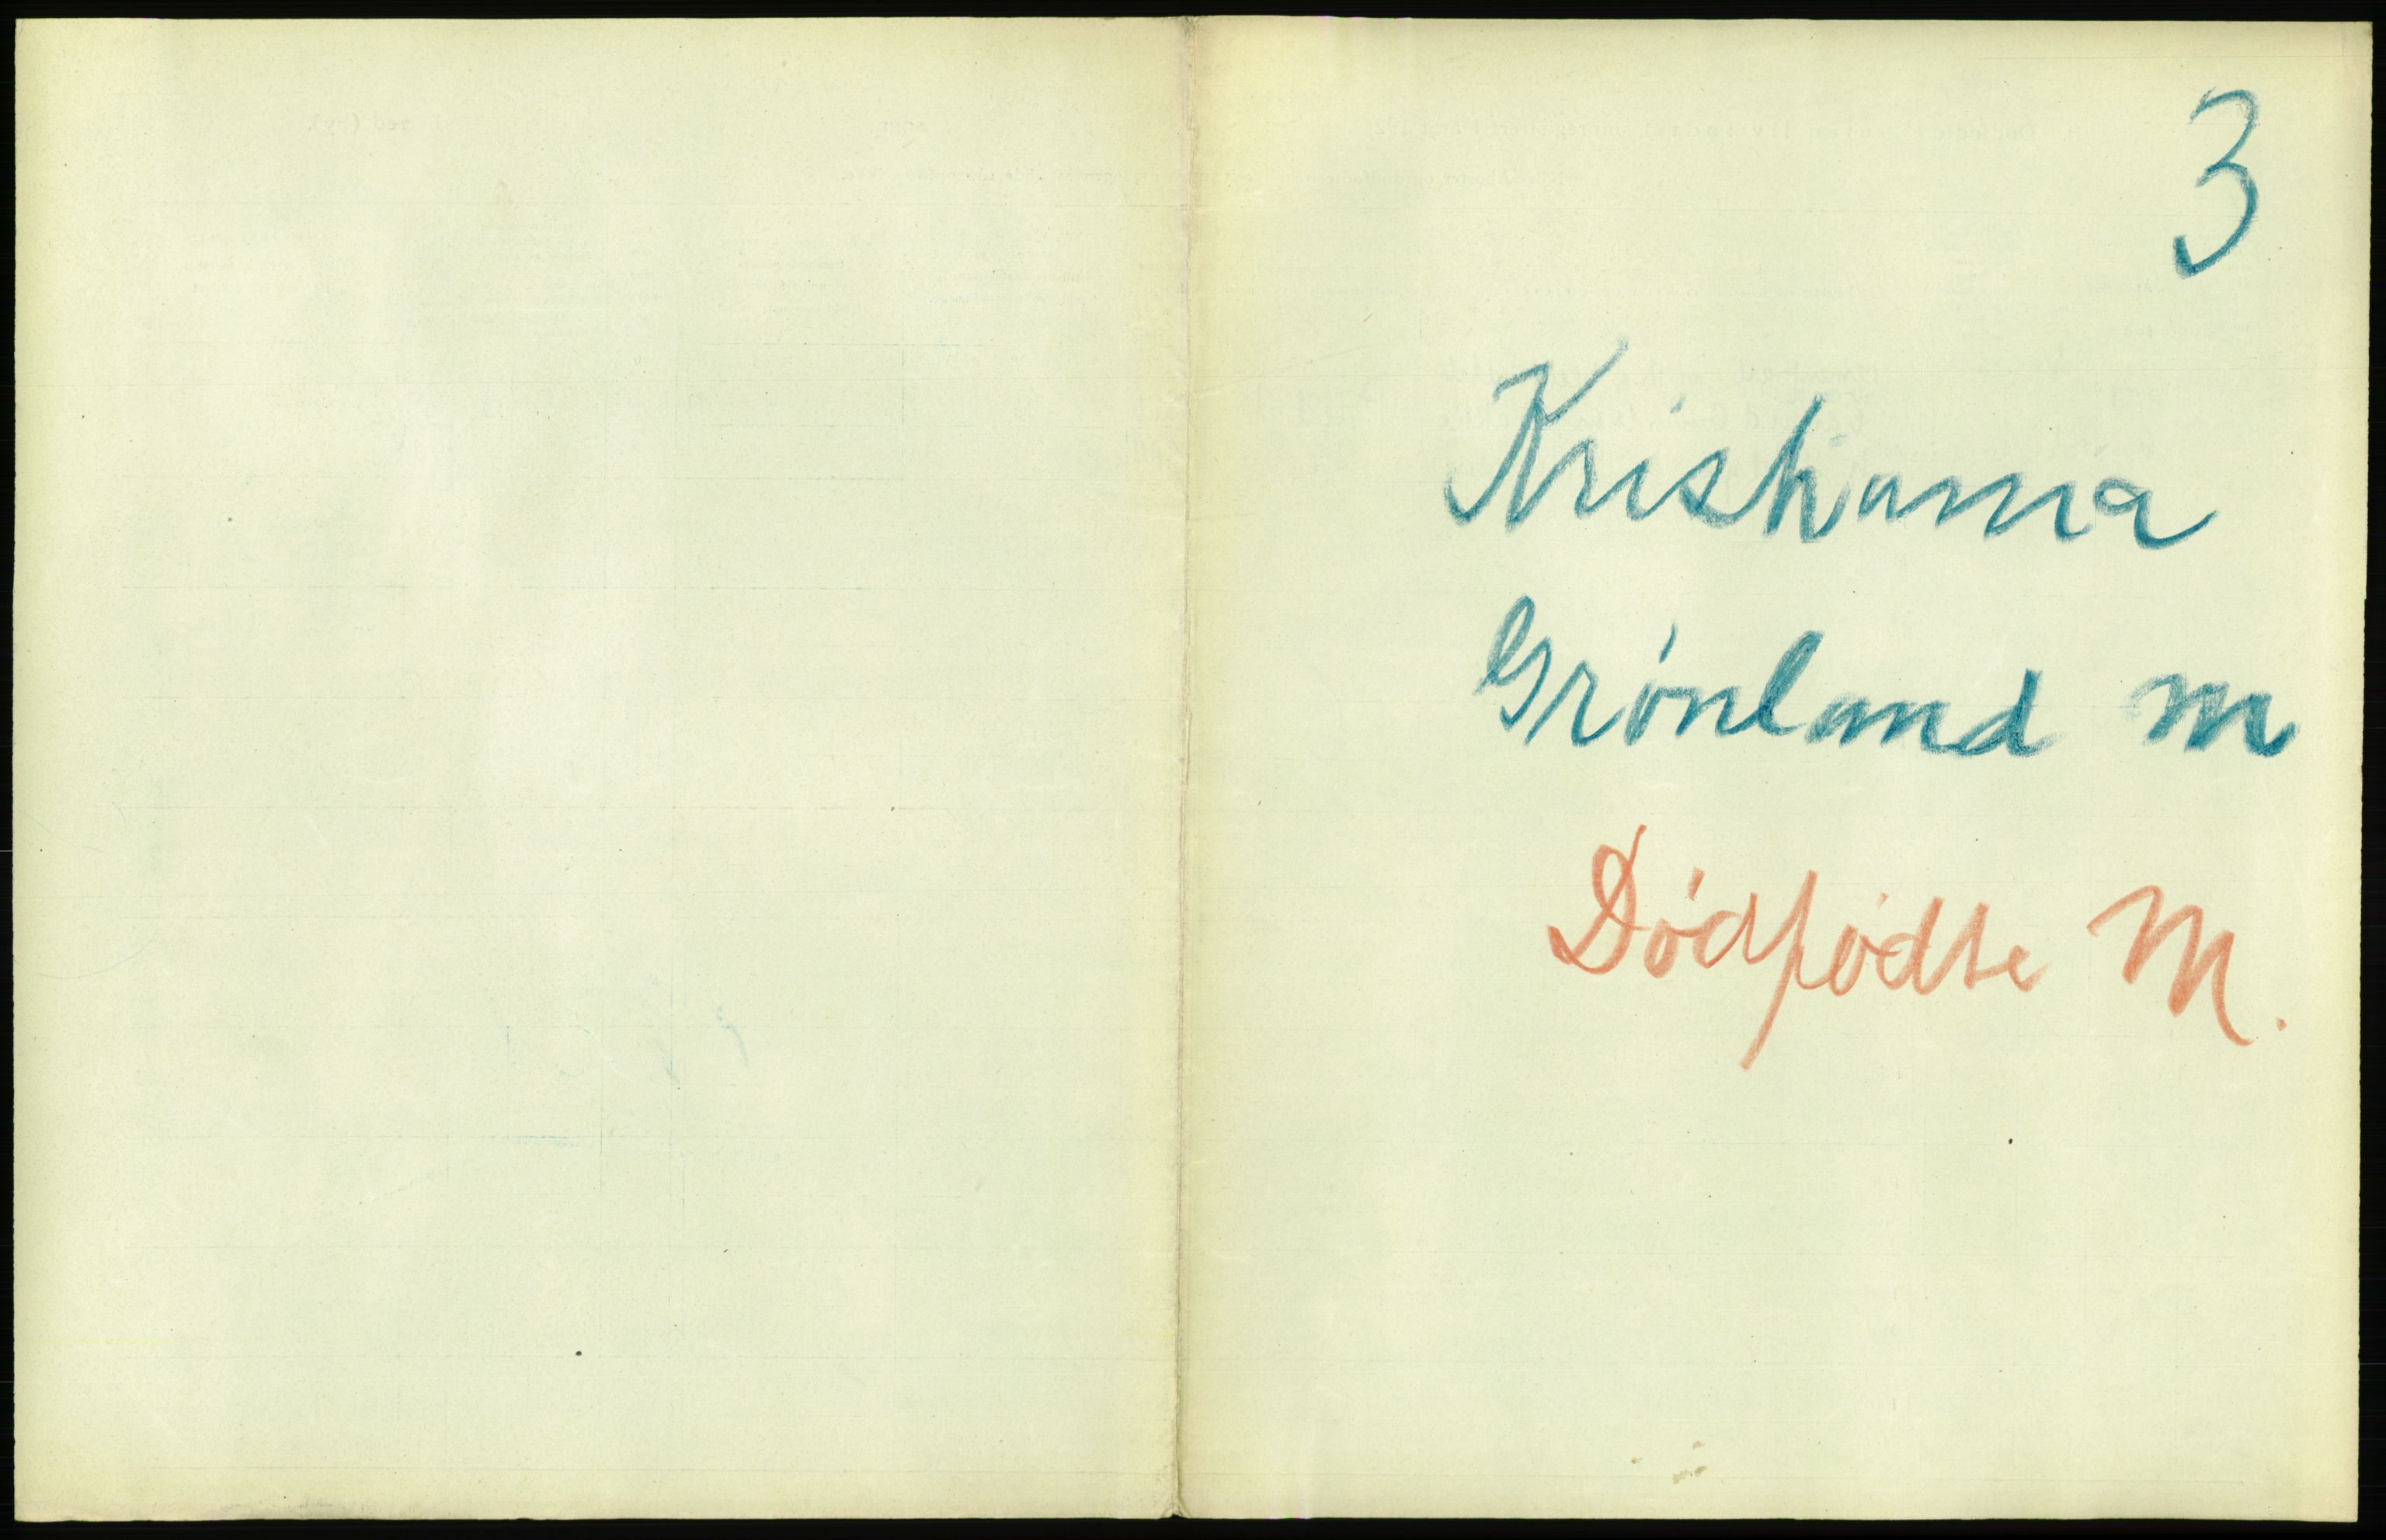 3
Kristiania
Grønland m
Dødfødte M.